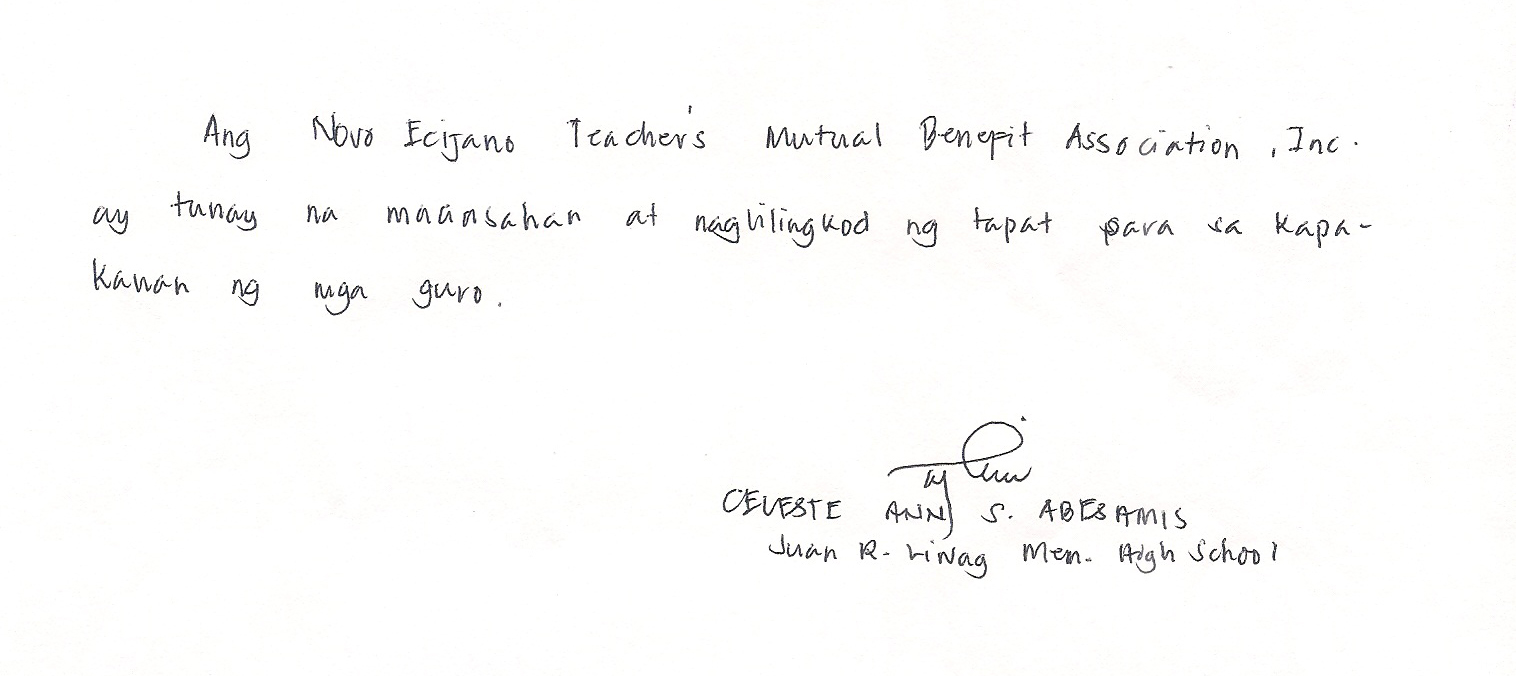 Ang Novo Ecijano Teacher's Mutual Benefit Association, Inc.
ay tunay na maaasahan at naglilingkod ng tapat para sa kapa-
kanan ng mga guro.
CELESTE ANN S. ABESAMIS
Juan R. Liwag Mem. High School